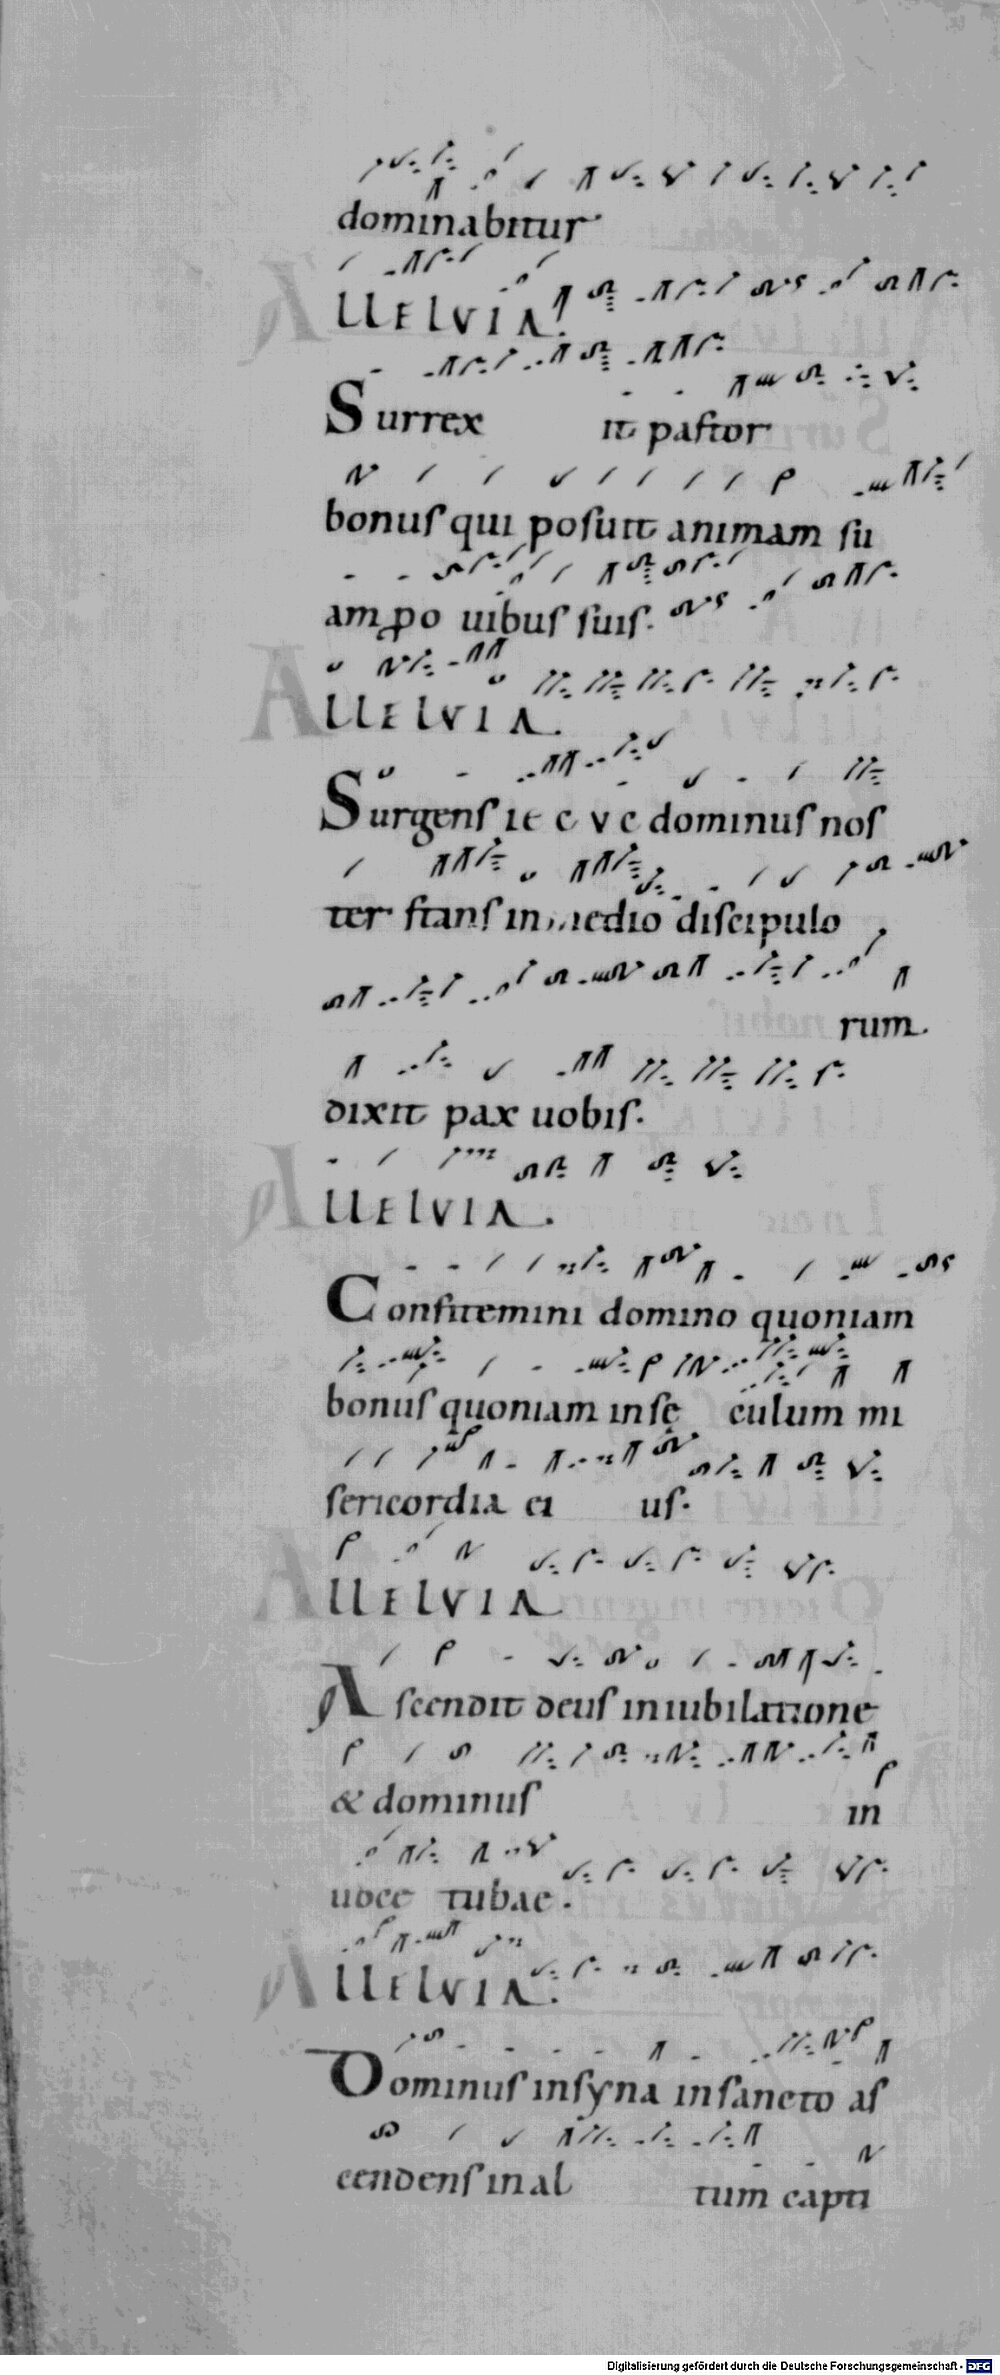 dominabitur
ALLELVIA.
Surrexit pastor
bonus qui posuit animam su
am pro uibus suis.
ALLELVIA.
Surgens ie c v c dominus nos
ter stans in medio discipulo
rum.
dixit pax uobis.
ALLELVIA.
Confitemini domino quoniam
bonus quoniam in sęculum mi
sericordia eius.
ALLELVIA
Ascendit deus in iubilatione
& dominus in
uoce tubae.
ALLELVIA.
Dominus in syna in sancto as
cendens in altum capti
Digitalisierung gefördert durch die Deutsche Forschungsgemeinschaft - DFG